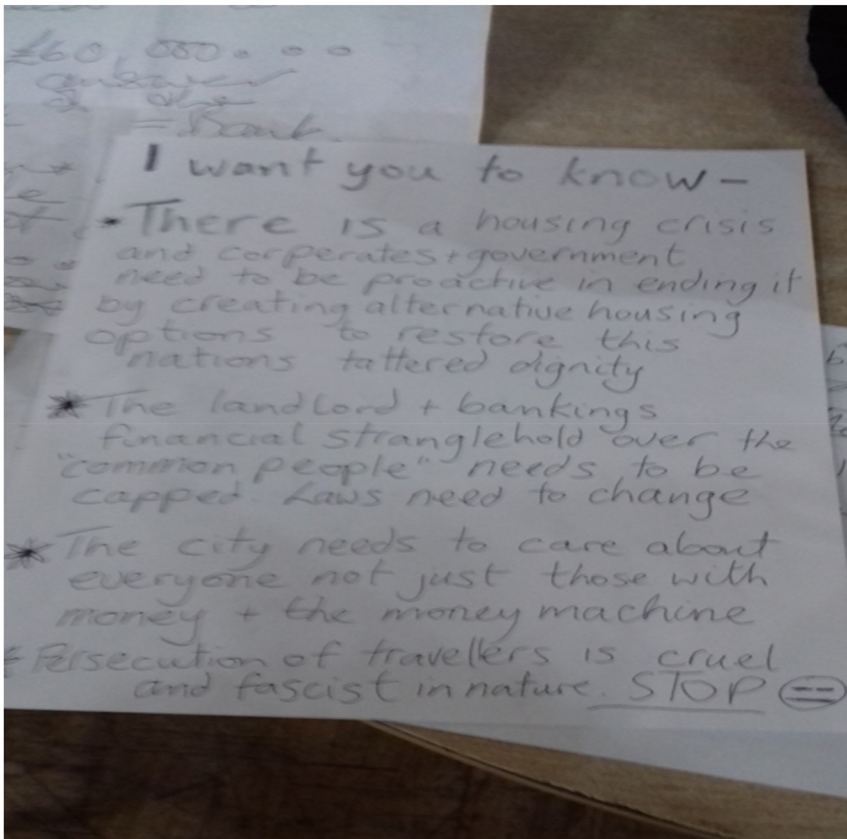 £60,000...
answer
= Bank
I want you to know -
* There is a housing crisis
and corperates + government
need to be proactive in ending it
by creating alternative housing
options to restore this
nations tattered dignity
* The landlord + bankings
financial stranglehold over the
"common people" needs to be
capped. Laws need to change
* The city needs to care about
everyone not just those with
money + the money machine
* Persecution of travellers is cruel
and fascist in nature. STOP